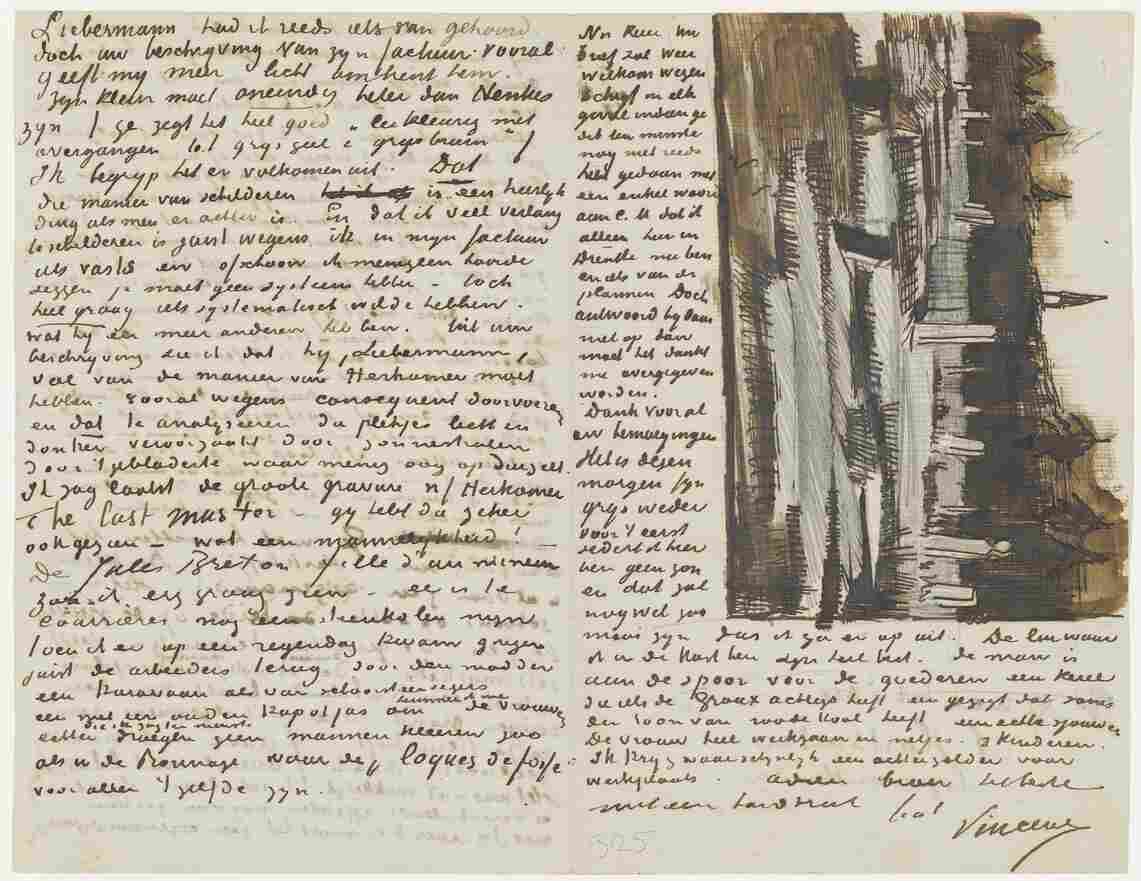 Liebermann had ik reeds iets van gehoord
doch uw beschrijving van zijn factuur vooral
geeft mij meer licht omtrent hem.
Zijn kleur moet oneindig beter dan Henkes
zijn / ge zegt het heel goed „leikleurig met
overgangen tot grijs geel & grijs bruin" /
Ik begrijp het er volkomen uit. Dat
die manier van schilderen is een heerlijk
ding als men er achter is. En dat ik veel verlang
te schilderen is juist wegens ik in mijn factuur
iets vasts en ofschoon ik menigeen hoorde
zeggen je moet geen systeem hebben – toch
heel graag iets systematisch wilde hebben.
wat hij en meer anderen hebben. Uit uw
beschrijving zie ik dat hij, Liebermann,
veel van de manier van Herkomer moet
hebben. vooral wegens consequent doorvoeren
en dat te analyseeren die plekjes licht en
donker veroorzaakt door zonnestralen
door 't gebladerte waar menig oog op duizelt.
Ik zag laatst de groote gravure n/ Herkomer
The last muster – gij hebt die zeker
ook gezien – wat een mannelijkheid!
De Jules Breton fille d'un mineur
zou ik erg graag zien – er is te
Courrières nog een steenkolenmijn
toen ik er op een regendag kwam gingen
juist de arbeiders terug door den modder
een karavaan als van schoorsteenvegers
een met een ouden kapotjas
de vrouwen
echter droegen geen mannen kleeren zoo
als in de Borinage waar de „loques de fosse"
voor allen 't zelfde zijn.
Nu kerel uw
brief zal weer
welkom wezen
schrijf in elk
geval indien ge
dit ten minste
nog niet reeds
hebt gedaan met
een enkel woord
aan C. M. dat ik
alleen hier in
Drenthe nu ben
en iets van de
plannen Doch
antwoord hij daar
niet op dan
moet het dunkt
me overgegeven
worden.
Dank vooral
uw bemoeyingen
Het is dezen
morgen fijn
grijs weder
voor 't eerst
sedert ik hier
ben geen zon
en dat zal
nog wel zoo
mooi zijn dus ik ga er op uit. De lui waar
ik in de kost ben zijn heel best. de man is
aan de spoor voor de goederen een kerel
die iets de Groux achtigs heeft en gezegt dat soms
den toon van roode kool heeft een echte sjouwer
De vrouw heel werkzaam en netjes. 3 kinderen.
Ik krijg waarschijnlijk een achterzolder voor
werkplaats. adieu broer het beste
met een handdruk
Vincent
325